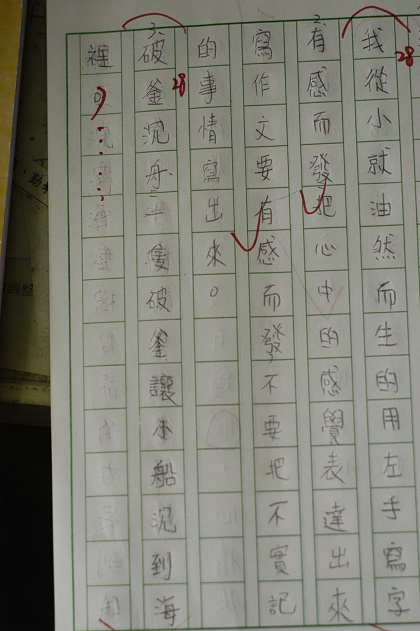 我從小就油然而生的用左手寫字
28
2.有感而發把心中的感覺表達出來
寫作文要有感而發不要把不實記
的事情寫出來。
3.破釜沉舟二
28
破釜讓小船沉到海
裡。